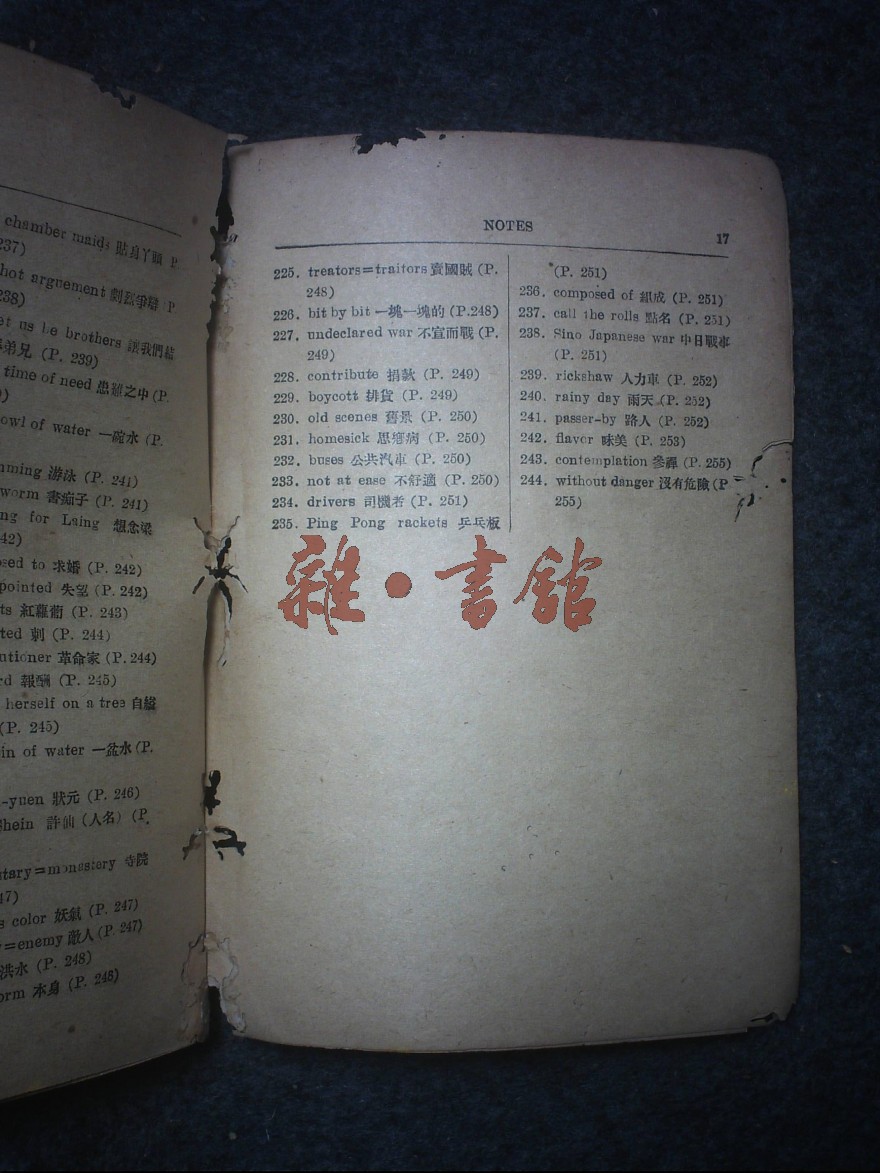 chamber maids 貼身丫頭 P.
237)
hot arguement 劇烈爭辯 P
238)
et us be brothers 讓我們結
弟兄 (P. 239)
time of need 患難之中 (P.
owl of water 一碗水 (P.
mming 游泳 (P. 241)
worm 書痴子 (P. 241)
ng for Laing 想念梁
42)
sed to 求婚 (P. 242)
pointed 失望 (P. 242)
ts 紅蘿蔔 (P. 243)
ted 刺 (P. 244)
utioner 革命家 (P. 244)
rd 報酬 (P. 245)
herself on a tree 自縊
(P. 245)
in of water 一盆水 (P.
-yuen 狀元 (P. 246)
hein 許仙 (人名) (P.
tary=monastery 寺院
47)
s color 妖氣 (P. 247)
=enemy 敵人 (P. 247)
洪水 (P. 248)
orm 本身 (P. 248)
NOTES 17
225. treators=traitors 賣國賊 (P.
248)
226. bit by bit 一塊一塊的 (P.248)
227. undeclared war 不宣而戰 (P.
249)
228. contribute 捐款 (P. 249)
229. boycott 排貨 (P. 249)
230. old scenes 舊景 (P. 250)
231. homesick 思鄉病 (P. 250)
232. buses 公共汽車 (P. 250)
233. not at ease 不舒適 (P. 250)
234. drivers 司機者 (P. 251)
235. Ping Pong rackets 乒乓板
(P. 251)
236. composed of 組成 (P. 251)
237. call the rolls 點名 (P. 251)
238. Sino Japanese war 中日戰事
(P. 251)
239. rickshaw 人力車 (P. 252)
240. rainy day 雨天 (P. 252)
241. passer-by 路人 (P. 252)
242. flavor 味美 (P. 253)
243. contemplation 參禪 (P. 255)
244. without danger 沒有危險 (P
255)
雜·書館